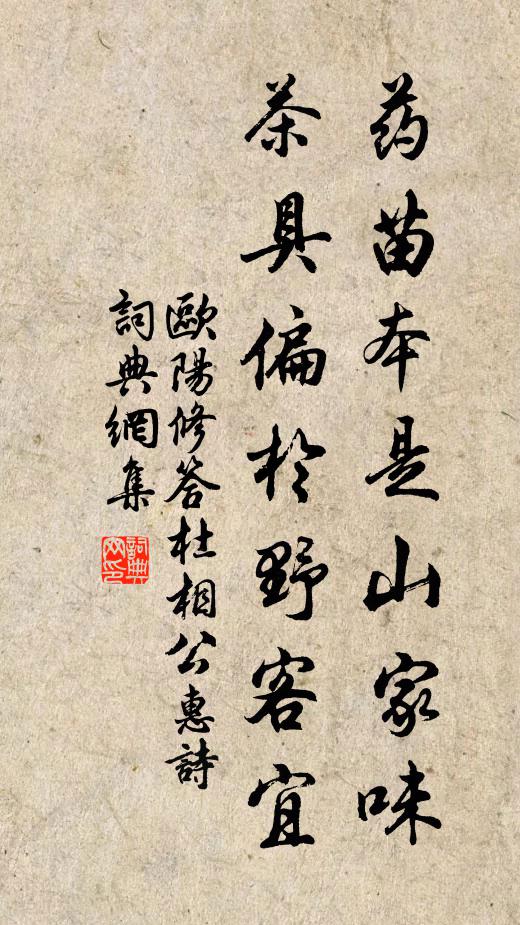 药苗本是山家味
茶具偏於野客宜
歐陽修答杜相公惠詩
詞典網集
詞典网印